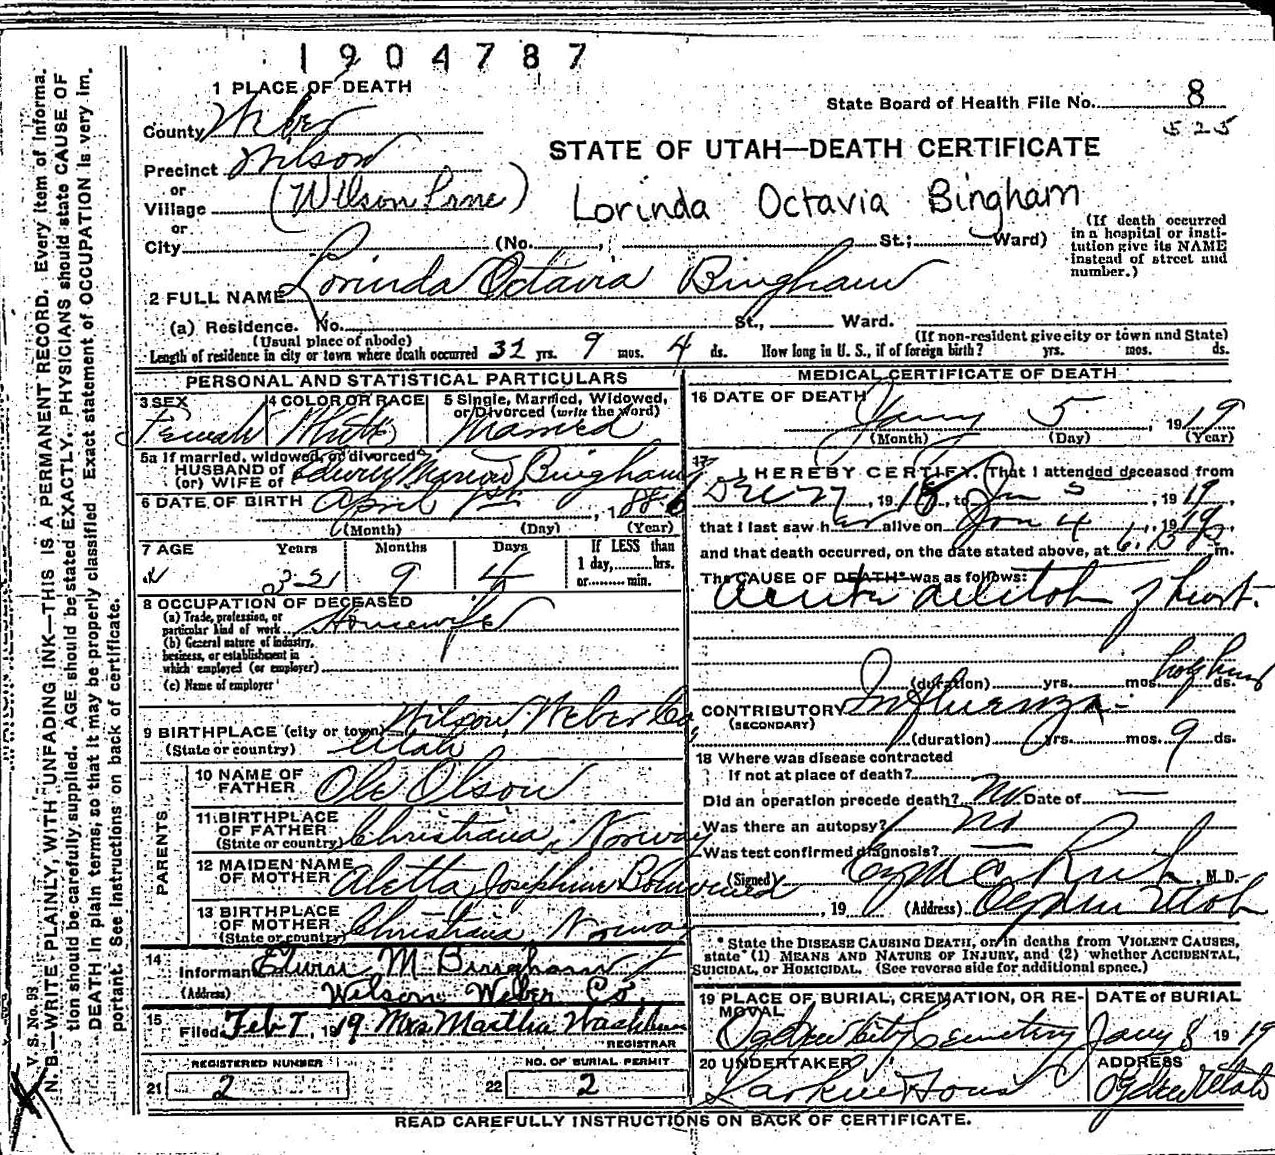 1904787
1 PLACE OF DEATH
State Board of Health File No. 8
525
County Weber
STATE OF UTAH—DEATH CERTIFICATE
Precinct Wilson
or
Village (Wilson Lane)
Lorinda Octavia Bingham
or
City (No. , St.; Ward)
(If death occurred in a hospital or insti-
tution give its NAME
instead of street and
number.)
2 FULL NAME Lorinda Octavia Bingham
(a) Residence. No. St., Ward.
(Usual place of abode) (If non-resident give city or town and State)
Length of residence in city or town where death occurred 32 yrs. 9 mos. 4 ds. How long in U. S., if of foreign birth? yrs. mos. ds.
PERSONAL AND STATISTICAL PARTICULARS
3 SEX 4 COLOR OR RACE 5 Single, Married, Widowed,
or Divorced (write the word)
Female White Married
5a If married, widowed, or divorced
HUSBAND of
(or) WIFE of Edwin Marion Bingham
6 DATE OF BIRTH April 1st, 1886
(Month) (Day) (Year)
7 AGE Years Months Days If LESS than
1 day, hrs.
or min.
32 9 4
8 OCCUPATION OF DECEASED
(a) Trade, profession, or
particular kind of work Housewife
(b) General nature of industry,
business, or establishment in
which employed (or employer)
(c) Name of employer
9 BIRTHPLACE (city or town) Wilson, Weber Co,
(State or country) Utah
PARENTS
10 NAME OF
FATHER Ole Olson
11 BIRTHPLACE
OF FATHER
(State or country) Christiana, Norway
12 MAIDEN NAME
OF MOTHER Aletta Josephine
13 BIRTHPLACE
OF MOTHER
(State or country) Christiana Norway
14
Informant Edwin M Bingham
(Address) Wilson Weber Co
15
Filed Feb 7, 1919 Mrs Martha Washburn
REGISTRAR
REGISTERED NUMBER NO. OF BURIAL PERMIT
21 2 22 2
MEDICAL CERTIFICATE OF DEATH
16 DATE OF DEATH
Jany 5 1919
(Month) (Day) (Year)
17
I HEREBY CERTIFY, That I attended deceased from
Dec 27, 1918, to Jan 5, 1919,
that I last saw her alive on Jan 4, 1919,
and that death occurred, on the date stated above, at 6.15 P m.
The CAUSE OF DEATH* was as follows:
Acute dilitation of heart.
(duration) yrs. mos. ds.
CONTRIBUTORY Influenza
(SECONDARY)
(duration) yrs. mos. 9 ds.
18 Where was disease contracted
If not at place of death?
Did an operation precede death? No Date of —
Was there an autopsy? no
Was test confirmed diagnosis? —
(Signed) Rich, M. D.
, 19 (Address) Ogden Utah
* State the DISEASE CAUSING DEATH, or in deaths from VIOLENT CAUSES,
state (1) MEANS AND NATURE OF INJURY, and (2) whether ACCIDENTAL,
SUICIDAL, or HOMICIDAL. (See reverse side for additional space.)
19 PLACE OF BURIAL, CREMATION, OR RE-
MOVAL DATE of BURIAL
Ogden City Cemetery Jany 8 1919
20 UNDERTAKER ADDRESS
Larkin & Sons Ogden Utah
READ CAREFULLY INSTRUCTIONS ON BACK OF CERTIFICATE.
V S. No. 93
N. B.—WRITE PLAINLY, WITH UNFADING INK—THIS IS A PERMANENT RECORD. Every item of informa-
tion should be carefully supplied. AGE should be stated EXACTLY. PHYSICIANS should state CAUSE OF
DEATH in plain terms, so that it may be properly classified. Exact statement of OCCUPATION is very im-
portant. See instructions on back of certificate.